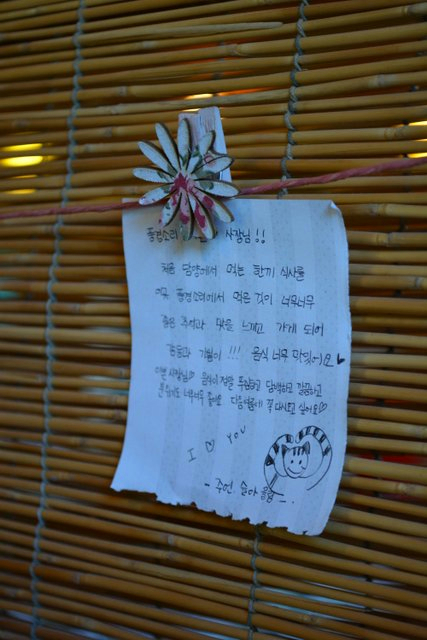 풍경소리 사장님!!
처음 담양에서 먹는 한끼 식사를
이곳 풍경소리에서 먹은 것이 너무너무
좋은 추억과 맛을 느끼고 가게 되어
감동과 기쁨이!!! 음식 너무 맛있어요♥
이쁜 사장님♡ 음식이 정말 푸짐하고 담백하고 깔끔하고
분위기도 너무너무 좋네요 다음여름에 꼭 다시오고 싶어요♡
I ♡ YOU
- 주연 슬아 올림 -